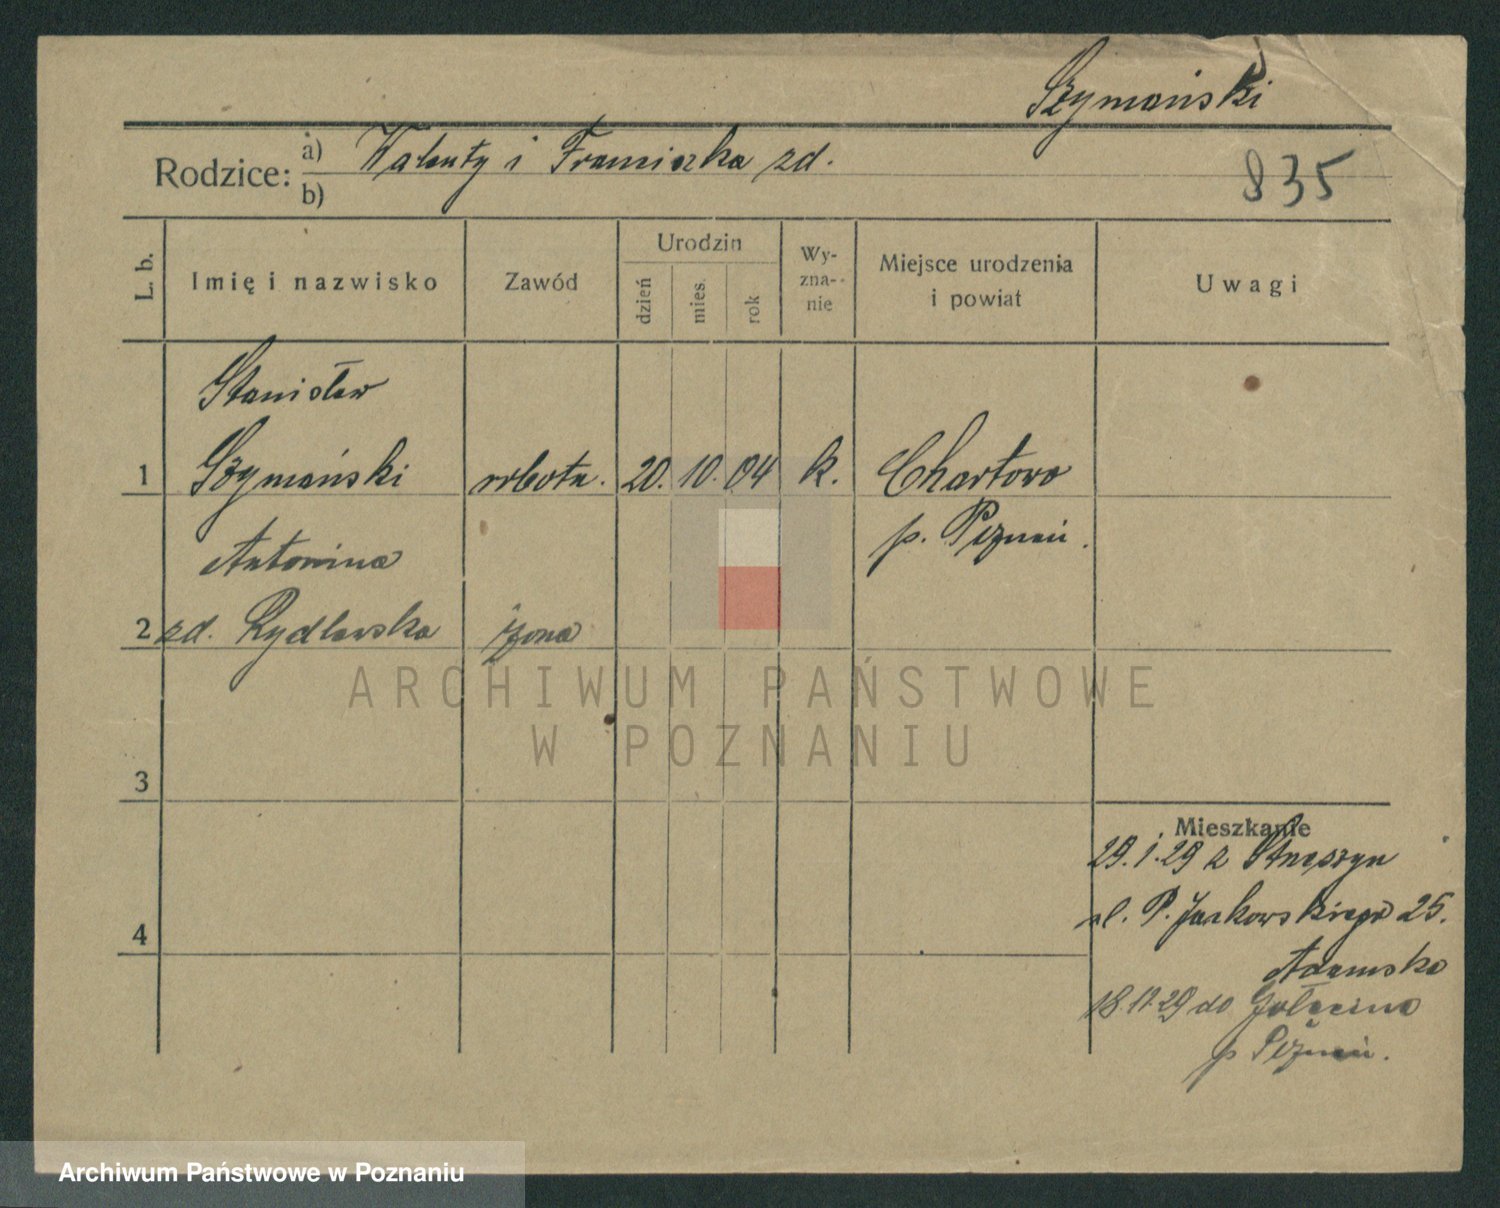 Szymański
Rodzice: a) Walenty i Franciszka zd.
b)
835
L. b.
Imię i nazwisko
Zawód
Urodzin
dzień
mies.
rok
Wy-
zna-
nie
Miejsce urodzenia
i powiat
Uwagi
Stanisław
1 Szymański robotn. 20. 10. 04 k. Chartowo
p. Poznań.
Antonina
2 zd. Rydlewska żona
ARCHIWUM PAŃSTWOWE
W POZNANIU
3
Mieszkanie
29.1.29 z Strzeszyn
ul. P. Jackowskiego 25.
4
Adamska
do Golęcina
p Poznań.
Archiwum Państwowe w Poznaniu